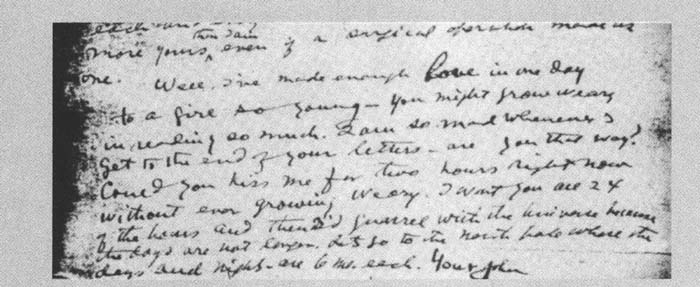 than I am
more yours, even if a surgical operation made us
one. Well, I've made enough love in one day
to a girl so young - you might grow weary
in reading so much. I am so mad whenever I
get to the end of your letters - are you that way?
Could you kiss me for two hours right now
without ever growing weary. I want you all 24
of the hours and then I'd quarrel with the universe because
the days are not longer. Let's go to the north pole where the
days and nights are 6 mo. each. Your John